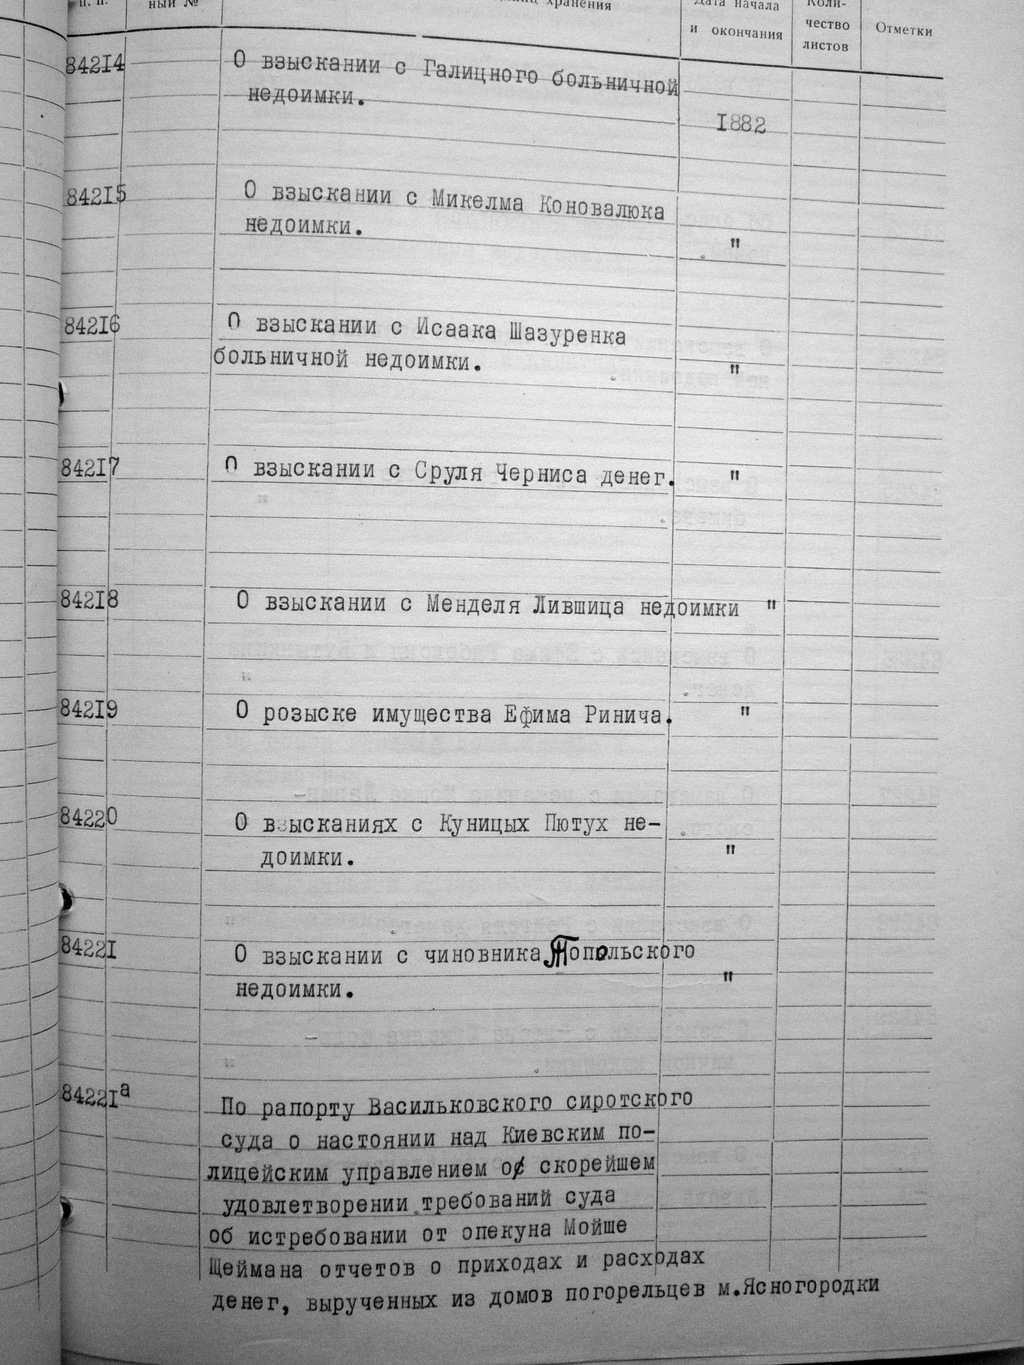 п. п.
ный №
хранения
Дата начала
и окончания
Коли-
чество
листов
Отметки
84214
О взыскании с Галицного больничной
недоимки.
1882
84215
О взыскании с Микелма Коновалюка
недоимки.
"
84216
О взыскании с Исаака Шазуренка
больничной недоимки.
"
84217
О взыскании с Сруля Черниса денег.
"
84218
О взыскании с Менделя Лившица недоимки "
84219
О розыске имущества Ефима Ринича.
"
84220
О взысканиях с Куницых Пютух не-
доимки.
"
84221
О взыскании с чиновника Топольского
недоимки.
"
84221а
По рапорту Васильковского сиротского
суда о настоянии над Киевским по-
лицейским управлением о скорейшем
удовлетворении требований суда
об истребовании от опекуна Мойше
Щеймана отчетов о приходах и расходах
денег, вырученных из домов погорельцев м.Ясногородки